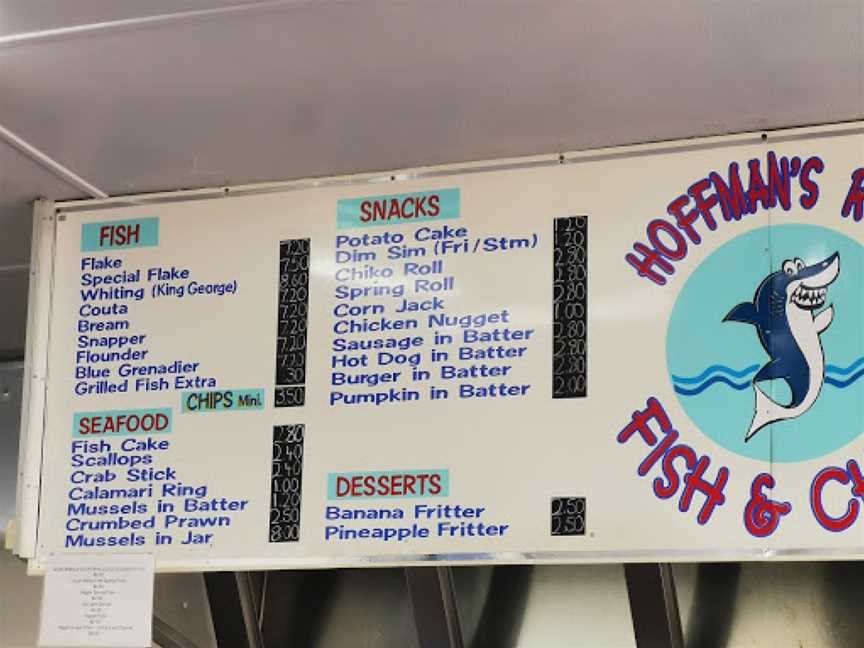 FISH
Flake 7.20
Special Flake 7.50
Whiting (King George) 8.60
Couta 7.20
Bream 7.20
Snapper 7.20
Flounder
Blue Grenadier 7.20
Grilled Fish Extra .30
CHIPS Mini. 3.50
SEAFOOD
Fish Cake 2.80
Scallops 2.40
Crab Stick 2.40
Calamari Ring 1.00
Mussels in Batter 1.20
Crumbed Prawn 2.50
Mussels in Jar 8.00
SNACKS
Potato Cake 1.20
Dim Sim (Fri/Stm) 1.20
Chiko Roll 2.80
Spring Roll 2.80
Corn Jack 2.80
Chicken Nugget 1.00
Sausage in Batter 2.80
Hot Dog in Batter 2.80
Burger in Batter 2.80
Pumpkin in Batter 2.00
DESSERTS
Banana Fritter 2.50
Pineapple Fritter 2.50
HOFFMAN'S
FISH &